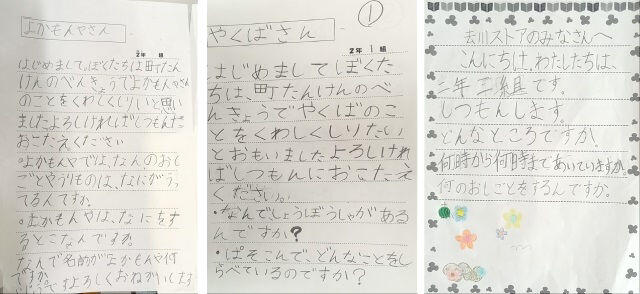 よかもんやさん
2年 組
はじめまして、ぼくたちは町たん
けんのべんきょうでよかもんやさん
のことをくわしくしりたいと思い
ましたよろしければしつもんに
おこたえください
・よかもんやでは、なんのおし
ごとやうりものは、なにがうっ
てるんですか。
・よかもんやは、なにをす
るところなんですか。
なんで名前がよかもんや何
ですか。
よろしくおねがいします
①
やくばさん
2年 1組
はじめましてぼくた
ちは、町たんけんのべ
んきょうでやくばのこ
とをくわしくしりたい
とおもいましたよろしけれ
ばしつもんにおこたえ
ください。
・なんでしょうぼうしゃがある
んですか?
・ぱそこんで、どんなことをし
らべているのですか?
去川ストアのみなさんへ
こんにちは、わたしたちは、
二年三組です。
しつもんします。
どんなところですか。
何時から何時まであいていますか。
何のおしごとをするんですか。